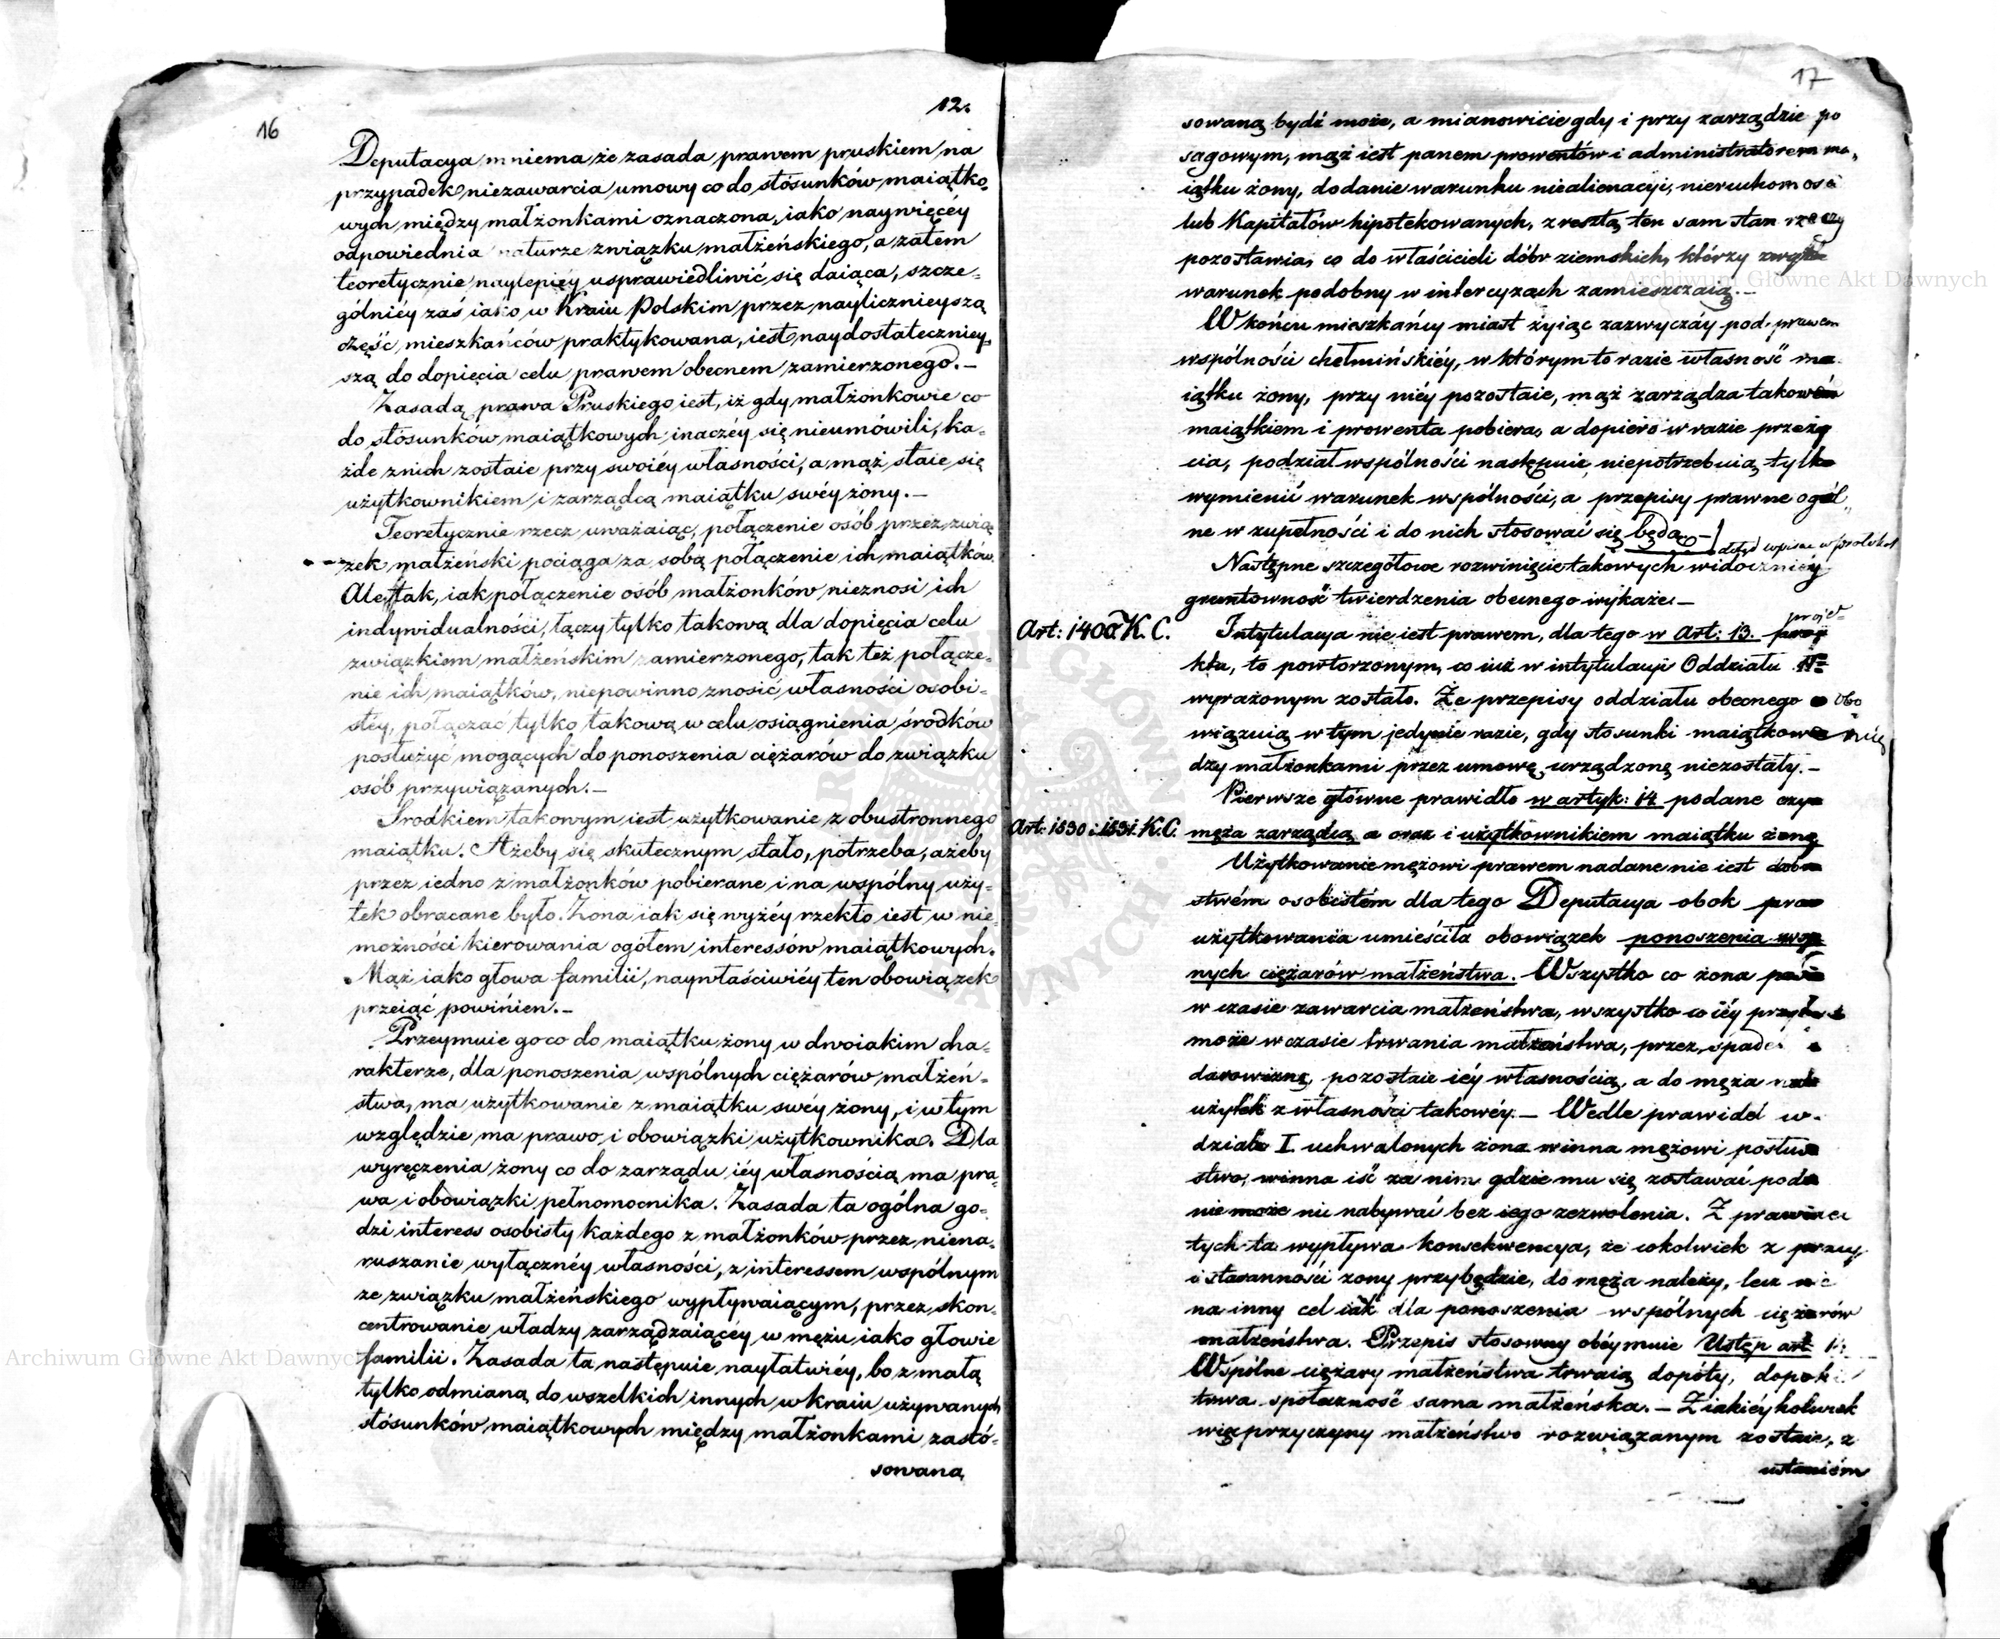 16
12.
Deputacya mniema, że zasada prawem pruskiem na
przypadek niezawarcia umowy co do stósunków maiątko-
wych między małżonkami oznaczona, iako naywięcéy
odpowiednia naturze związku małżeńskiego, a zatem
teoretycznie naylepiéy usprawiedliwić się daiąca, szcze-
gólniéy zaś iako w Kraiu Polskim przez naylicznieyszą
część mieszkańców praktykowana, iest naydostateczniey-
szą do dopięcia celu prawem obecnem zamierzonego. –
Zasadą prawa Pruskiego iest, iż gdy małżonkowie co
do stósunków maiątkowych inaczéy się nieumówili, ka-
żde z nich zostaie przy swoiéy własności, a mąż staie się
użytkownikiem i zarządcą maiątku swéy żony. –
Teoretycznie rzecz uważaiąc, połączenie osób przez zwią
zek małżeński pociąga za sobą połączenie ich maiątków.
Ale tak, iak połączenie osób małżonków nieznosi ich
indywidualności, łączy tylko takową dla dopięcia celu
związkiem małżeńskim zamierzonego, tak też połącze-
nie ich maiątków, niepowinno znosić własności osobi-
stéy, połączać tylko takową w celu osiągnienia środków
posłużyć mogących do ponoszenia ciężarów do związku
osób przywiązanych. –
Srodkiem takowym iest użytkowanie z obustronnego
maiątku. Ażeby się skutecznym stało, potrzeba, ażeby
przez iedno z małżonków pobierane i na wspólny uży-
tek obracane było. Zona iak się wyżéy rzekło iest w nie-
możności kierowania ogółem interessów maiątkowych.
Mąż iako głowa familii, naywłaściwiéy ten obowiązek
przeiąć powinien. –
Przeymuie go co do maiątku żony w dwoiakim cha-
rakterze, dla ponoszenia wspólnych ciężarów małżeń-
stwa, ma użytkowanie z maiątku swéy żony, i w tym
względzie ma prawo i obowiązki użytkownika. Dla
wyręczenia żony co do zarządu iéy własnością ma pra-
wa i obowiązki pełnomocnika. Zasada ta ogólna go-
dzi interess osobisty każdego z małżonków przez niena-
ruszanie wyłącznéy własności, z interessem wspólnym
ze związku małżeńskiego wypływaiącym, przez skon-
centrowanie władzy zarządzaiącéy w mężu iako głowie
familii. Zasada ta następuie nayłatwiéy, bo z małą
tylko odmianą do wszelkich innych w kraiu używanych
stósunków maiątkowych między małżonkami zastó-
sowana
17
sowaną bydź może, a mianowicie gdy i przy zarządzie po
sagowym, mąż iest panem prowentów i administratorem ma-
iątku żony, dodanie warunku niealienacyi nieruchomości
lub Kapitałów hipotekowanych, zresztą ten sam stan rzeczy
pozostawia, co do właścicieli dóbr ziemskich, którzy zwykle
warunek podobny w intercyzach zamieszczaią. –
W końcu mieszkańcy miast żyiąc zazwyczáy pod prawem
wspólności chełmińskiéy, w którym to razie własność ma-
iątku żony, przy niéy pozostaie, mąż zarządza takowém
maiątkiem i prowenta pobiera, a dopiero w razie przeży
cia, podział wspólności następuie, niepotrzebuią tylko
wymienić warunek wspólności, a przepisy prawne ogól-
ne w zupełności i do nich stosować się będą. –
dotąd wpisane w protokół
Następne szczegółowe rozwinięcie takowych widoczniéy
gruntowność twierdzenia obecnego wykaże. –
Art: 1400 K. C.
Intytulacya nie iest prawem, dla tego w Art: 13. proje-
ktu, to powtorzonym, co iuż w intytulacyi Oddziału II
wyrażonym zostało. Że przepisy oddziału obecnego obo
wiązuią w tym jedynie razie, gdy stosunki maiątkowe mię
dzy małżonkami przez umowę urządzone niezostały. –
Pierwsze główne prawidło w artyk: 14 podane czyni
Art: 1530 i 1531. K. C.
męża zarządcą oraz i użytkownikiem maiątku żony
Użytkowanie mężowi prawem nadane nie iest dobro
stwém osobistém dla tego Deputacya obok prawa
użytkowania umieściła obowiązek ponoszenia wspól
nych ciężarów małżeństwa. Wszystko co żona posia
w czasie zawarcia małżeństwa, wszystko co iéy
może w czasie trwania małżeństwa, przez spadek i
darowiznę, pozostaie iéy własnością, a do męża należy
użytek z własności takowéy. – Wedle prawideł w
dziale I. uchwalonych żona winna mężowi posłusze
stwo, winna iść za nim gdzie mu się zostawać podo
nie może nic nabywać bez iego zezwolenia. Z prawideł
tych ta wypływa konsekwencya, że cokolwiek z pracy
i staranności żony przybędzie, do męża należy, lecz nie
na inny cel iak dla ponoszenia wspólnych ciężarów
małżeństwa. Przepis stosowny obéymuie Ustęp art
Wspólne ciężary małżeństwa trwaią dopóty, dopóki
trwa społeczność sama małżeńska. – Z iakiéykolwiek
więc przyczyny małżeństwo rozwiązanym zostaie, z
ustaniém
Archiwum Główne Akt Dawnych
Archiwum Główne Akt Dawnych